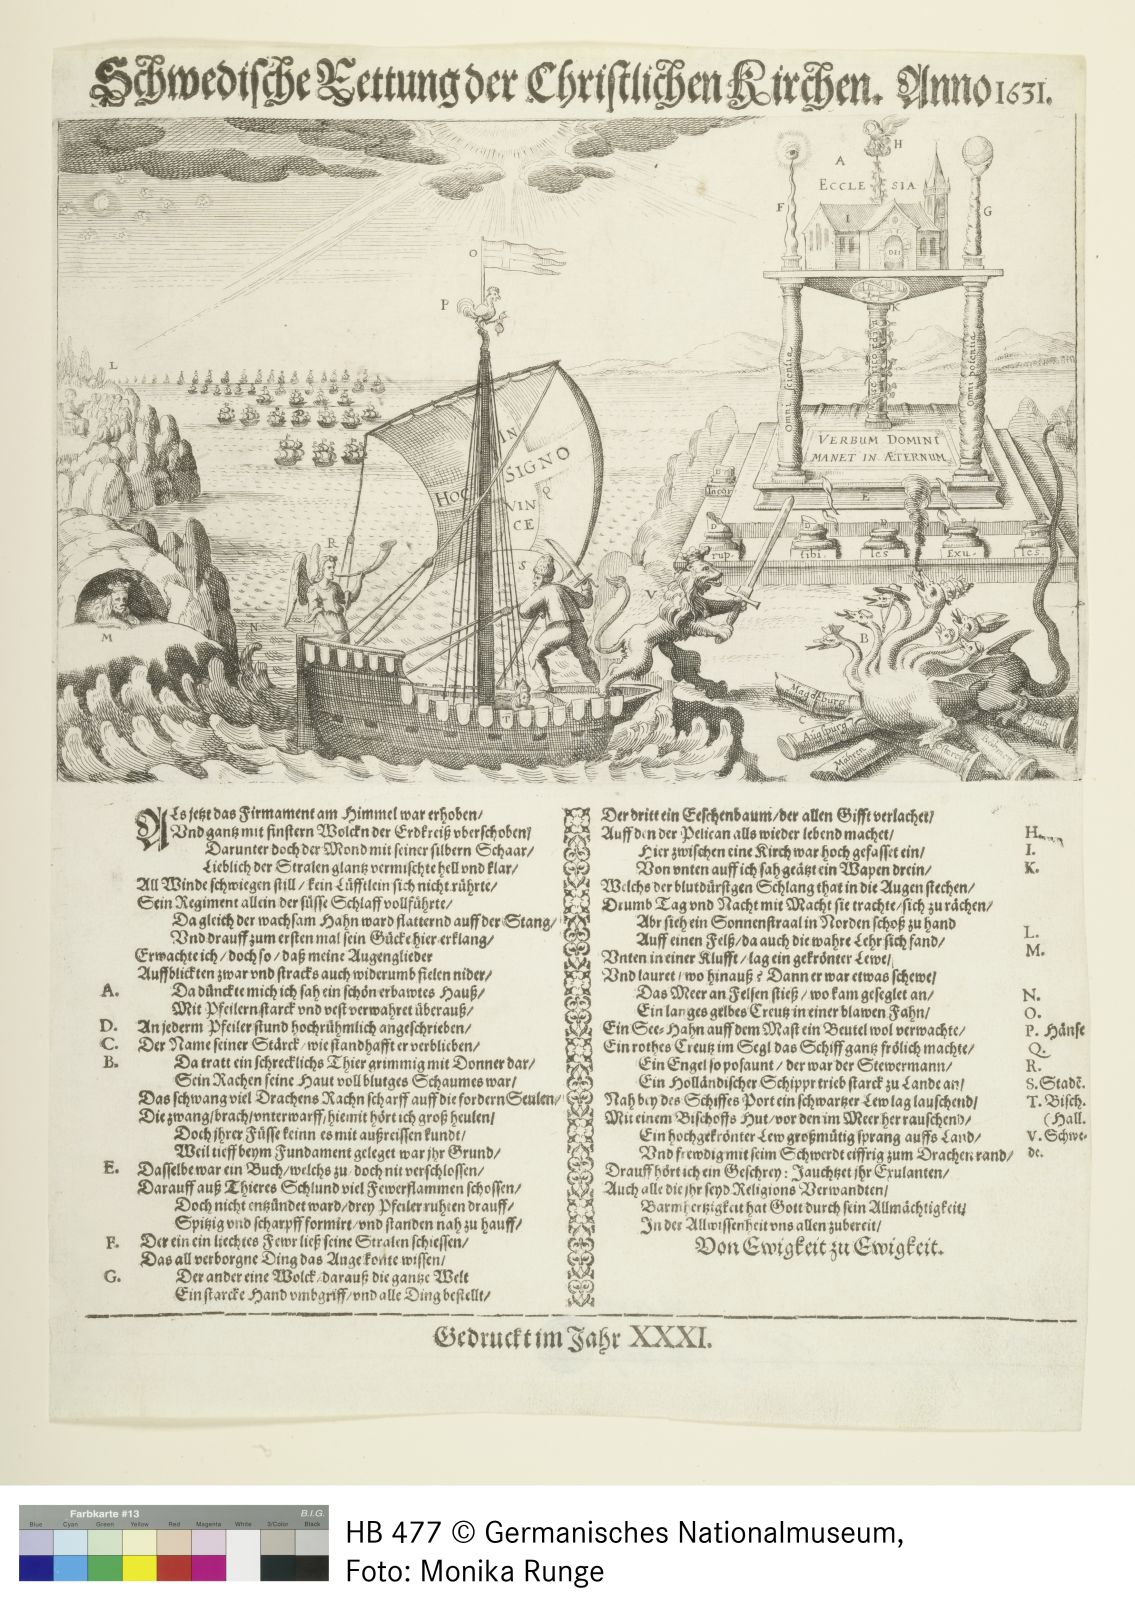 Schwedische Rettung der Christlichen Kirchen. Anno 1631.
H
A
ECCLESIA
F
G
I
DEI
O
P
K
L
omni scientia
omni potentia
VERBUM DOMINI
MANET IN ÆTERNUM
IN
HOC SIGNO
VIN Q
CE
E
Iacob
D D D D
rup- tibi- les Exu- les.
R
S
V
M
N
B
T
C
Magdeburg
Augspurg
Mähren
Pfaltz
Als jetzt das Firmament am Himmel war erhoben/
Vnd gantz mit finstern Wolckn der Erdkreiß vberschoben/
Darunter doch der Mond mit seiner silbern Schaar/
Lieblich der Stralen glantz vermischte hell vnd klar/
All Winde schwiegen still/ kein Lüfftlein sich nicht rührte/
Sein Regiment allein der süsse Schlaff vollführte/
Da gleich der wachsam Hahn ward flatternd auff der Stang/
Vnd drauff zum ersten mal sein Gücke hier erklang/
Erwachte ich/ doch so/ daß meine Augenglieder
Auffblickten zwar vnd stracks auch widerumb fielen nider/
A. Da dünckte mich ich sah ein schön erbawtes Hauß/
Mit Pfeilern starck vnd vest verwahret überauß/
D. An jederm Pfeiler stund hochrühmlich angeschrieben/
C. Der Name seiner Stärck/ wie standhafft er verblieben/
B. Da tratt ein schrecklichs Thier grimmig mit Donner dar/
Sein Rachen seine Haut voll blutges Schaumes war/
Das schwang viel Drachens Rachn scharff auff die fordern Seulen/
Die zwang/ brach/ vnterwarff/ hiemit hört ich groß heulen/
Doch jhrer Füsse keinn es mit außreissen kundt/
Weil tieff beym Fundament geleget war jhr Grund/
E. Dasselbe war ein Buch/ welchs zu/ doch nit verschlossen/
Darauff auß Thieres Schlund viel Fewerflammen schossen/
Doch nicht entzündet ward/ drey Pfeiler ruhten drauff/
Spitzig vnd scharpff formirt/ vnd standen nah zu hauff/
F. Der ein ein liechtes Fewr ließ seine Stralen schiessen/
Das all verborgne Ding das Ange konte wissen/
G. Der ander eine Wolck/ darauß die gantze Welt
Ein starcke Hand vmbgriff/ vnd alle Ding bestellt/
Der dritt ein Eeschenbaum/ der allen Gifft verlachet/
Auff den der Pelican alls wieder lebend machet/ H.
Hier zwischen eine Kirch war hoch gefasset ein/ I.
Von vnten auff ich sah geätzt ein Wapen drein/ K.
Welchs der blutdürstgen Schlang that in die Augen stechen/
Drumb Tag vnd Nacht mit Macht sie trachte/ sich zu rächen/
Abr sieh ein Sonnenstraal in Norden schoß zu hand
Auff einen Felß/ da auch die wahre Lehr sich fand/ L.
Vnten in einer Klufft/ lag ein gekrönter Lewe/ M.
Vnd lauret/ wo hinauß? Dann er war etwas schewe/
Das Meer an Felsen stieß/ wo kam geseglet an/ N.
Ein langes gelbes Creutz in einer blawen Fahn/ O.
Ein See-Hahn auff dem Mast ein Beutel wol verwachte/ P. Hänse
Ein rothes Creutz im Segl das Schiff gantz frölich machte/ Q.
Ein Engel so posaunt/ der war der Stewermann/ R.
Ein Holländischer Schippr trieb starck zu Lande an/ S. Stadt.
Nah bey des Schiffes Port ein schwartzer Lew lag lauschend/ T. Bisch.
Mit einem Bischoffs Hut/ vor den im Meer her rauschend/ (Hall.
Ein hochgekrönter Lew großmütig sprang auffs Land/ V. Schwe-
Vnd frewdig mit seim Schwerdt eiffrig zum Drachen rand/ de.
Drauff hört ich ein Geschrey: Jauchtzet jhr Exulanten/
Auch alle die jhr seyd Religions Verwandten/
Barmhertzigkeit hat Gott durch sein Allmächtigkeit/
In der Allwissenheit vns allen zubereit/
Von Ewigkeit zu Ewigkeit.
Gedruckt im Jahr XXXI.
Farbkarte #13 B.I.G.
Blue Cyan Green Yellow Red Magenta White 3/Color Black
HB 477 © Germanisches Nationalmuseum,
Foto: Monika Runge